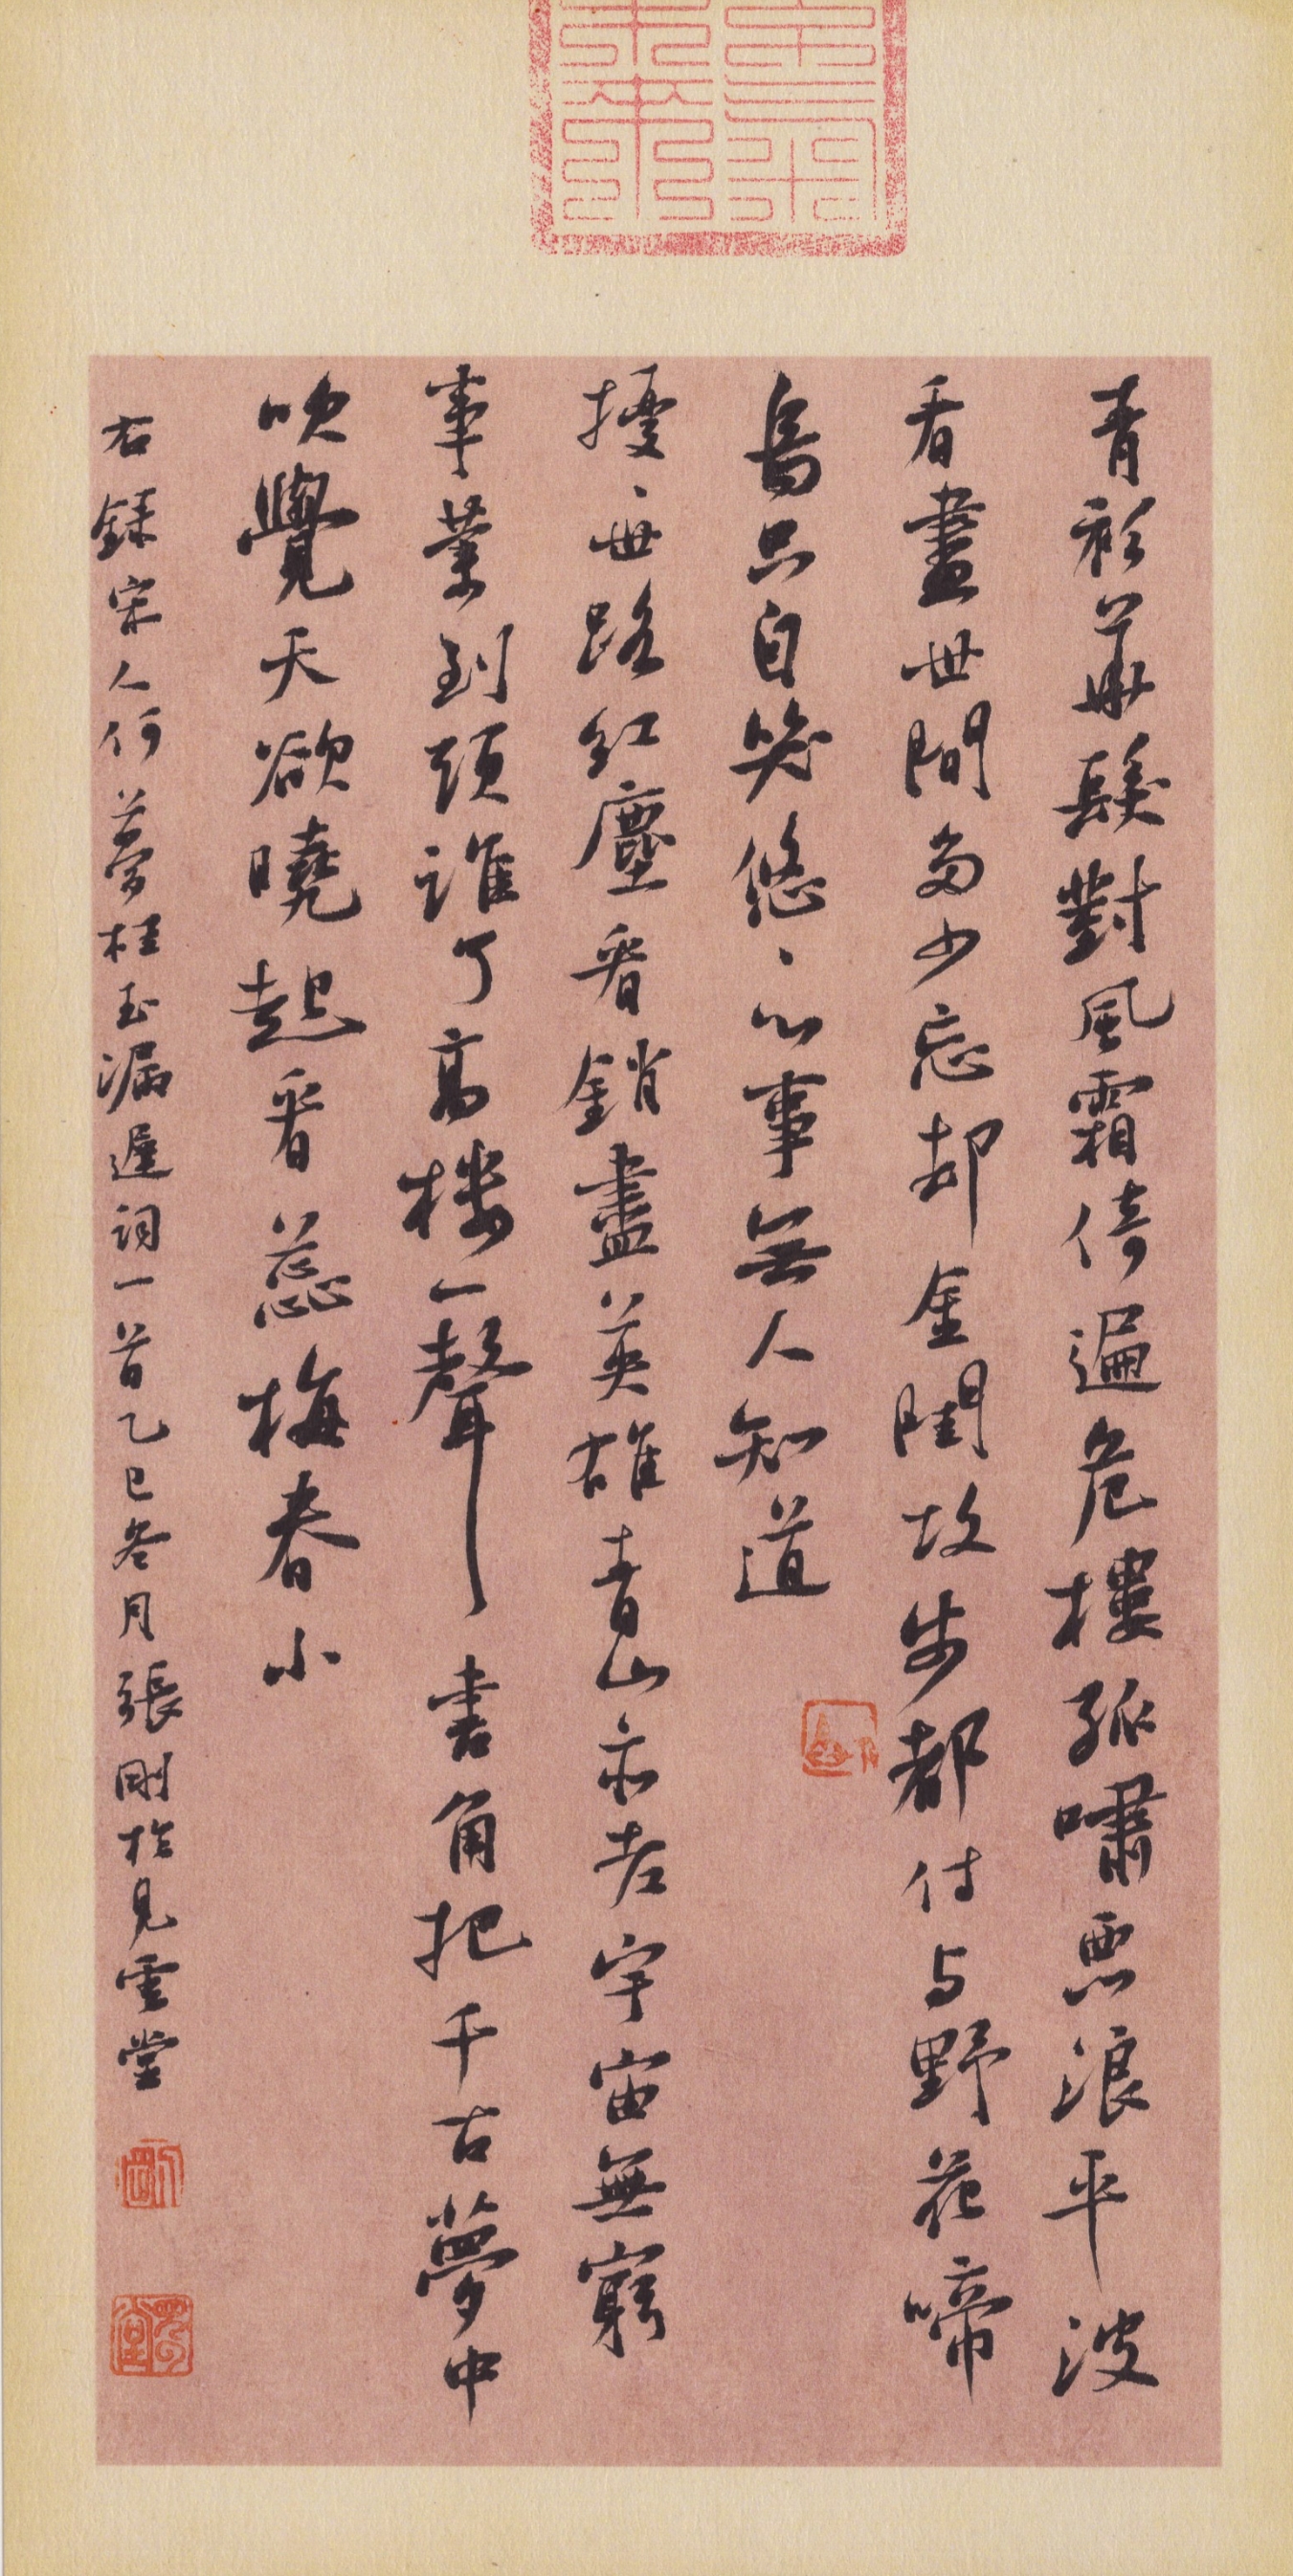 青衫華髮對風霜倚遍危樓孤嘯惡浪平波
看盡世間多少忘却金閨故步都付与野花啼
鳥只自笑悠〻心事無人知道
擾〻世路紅塵看銷盡英雄青山亦老宇宙無窮
事業到頭誰了高樓一聲畫角把千古夢中
吹覺天欲曉起看蕊梅春小
右錄宋人何夢桂玉漏遲詞一首乙巳冬月張剛於見雲堂